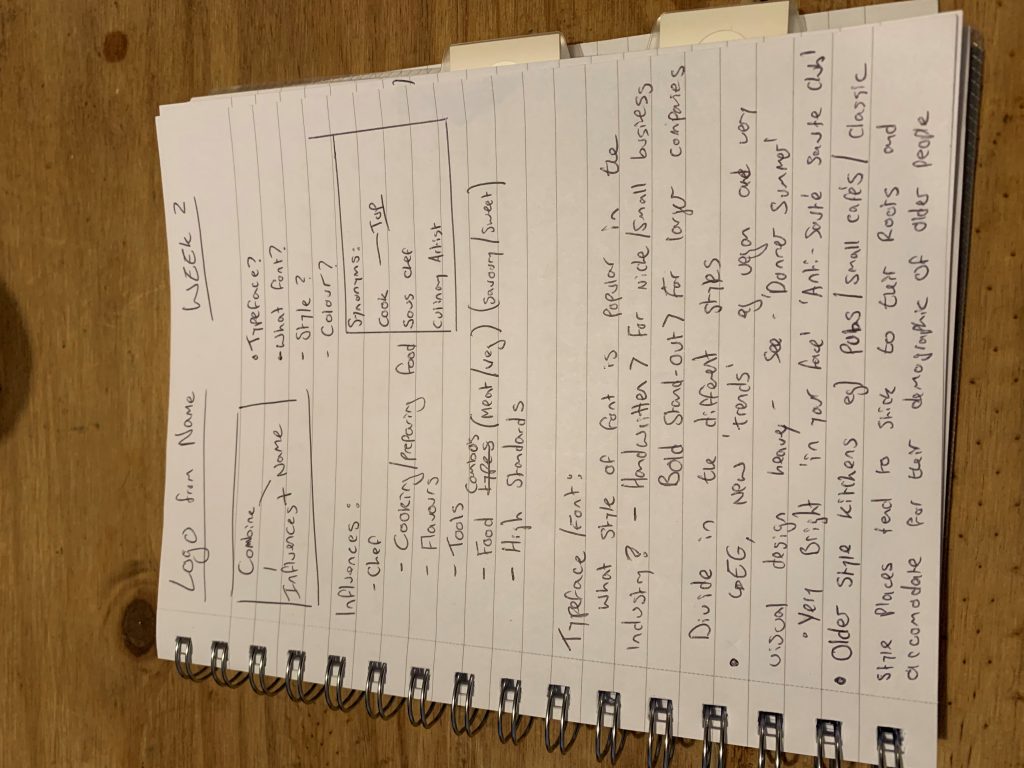 Logo from Name WEEK 2
Combine
Influences + Name
• Typeface?
• What font?
- Style?
- Colour?
Influences:
- Chef
Synonyms:
Cook — Top
Sous chef
Culinary Artist
- Cooking/Preparing food
- Flavours
- Tools
Combos
- Food types (Meat/veg) (Savoury/Sweet)
- High Standards
Typeface/Font:
What style of font is popular in the
Industry? - Handwritten > For niche/small business
Bold Stand-out > For larger companies
Divide in the different styles
• EG, New 'trends' eg vegan and very
visual design heavy - see - 'Donner Summer'
• Very Bright 'in your face' 'Anti-Sauté Saute Club'
• Older style kitchens eg Pubs/small cafés/Classic
style Places tend to stick to their Roots and
accomodate for their demographic of older people